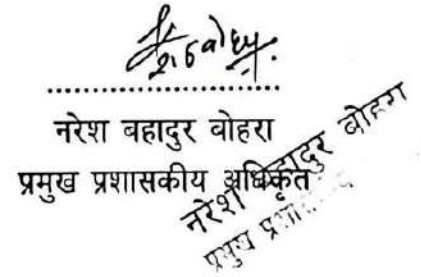 नरेश बहादुर बोहरा
प्रमुख प्रशासकीय अधिकृत
नरेश बहादुर बोहरा
प्रमुख